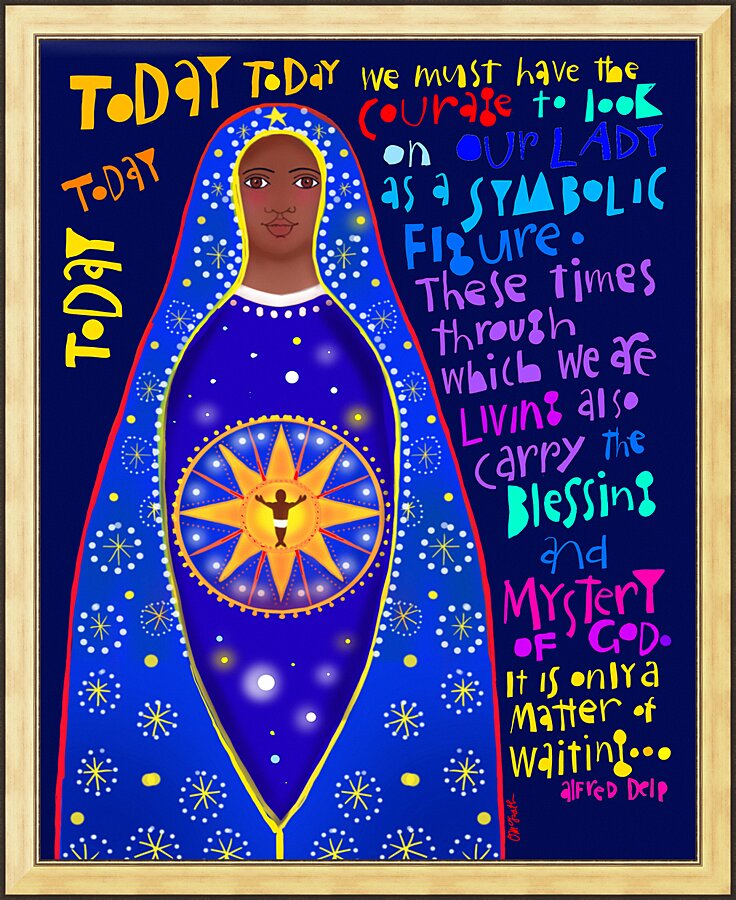 TODAY TODAY
TODAY
TODAY
We must have the
Courage to look
on OUR LADY
as a SYMBOLIC
Figure.
These times
through
which we are
Living also
carry the
Blessing
and
Mystery
OF GOD.
It is only a
Matter of
waiting...
alfred Delp